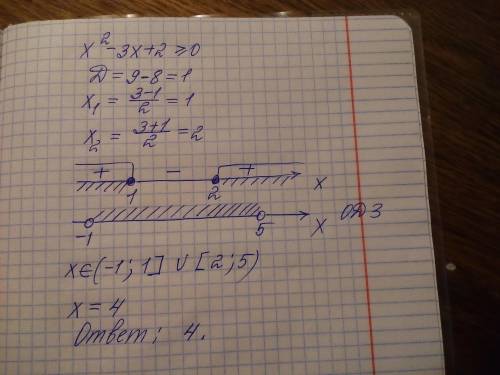 x² - 3x + 2 ≥ 0
D = 9 - 8 = 1
x₁ = (3-1)/2 = 1
x₂ = (3+1)/2 = 2
+ - +
1 2 x
-1 5 x ОДЗ
x ∈ (-1; 1] ∪ [2; 5)
x = 4
Ответ: 4.